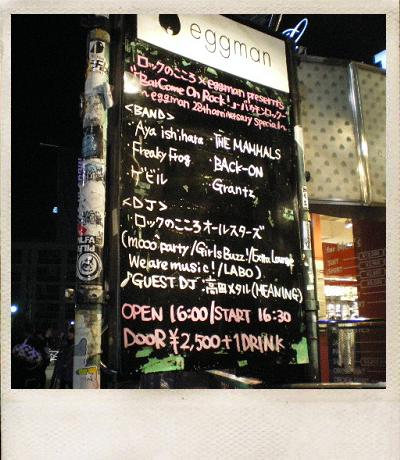 eggman
ロックのこころ×eggman presents
"BaCome On Rock!"-バッカモンロック-
~eggman 28th anniversary special!~
<BAND>
Aya ishihara ・THE MAMMALS
Freaky Frog ・BACK-ON
ゲビル ・Grantz
<DJ>
・ロックのこころオールスターズ
(mooo party/Girls Buzz!/Extra Lounge
We are music!/LABO)
♪GUEST DJ:高田メタル(MEANING)
OPEN 16:00/START 16:30
DOOR ¥2,500+1DRINK